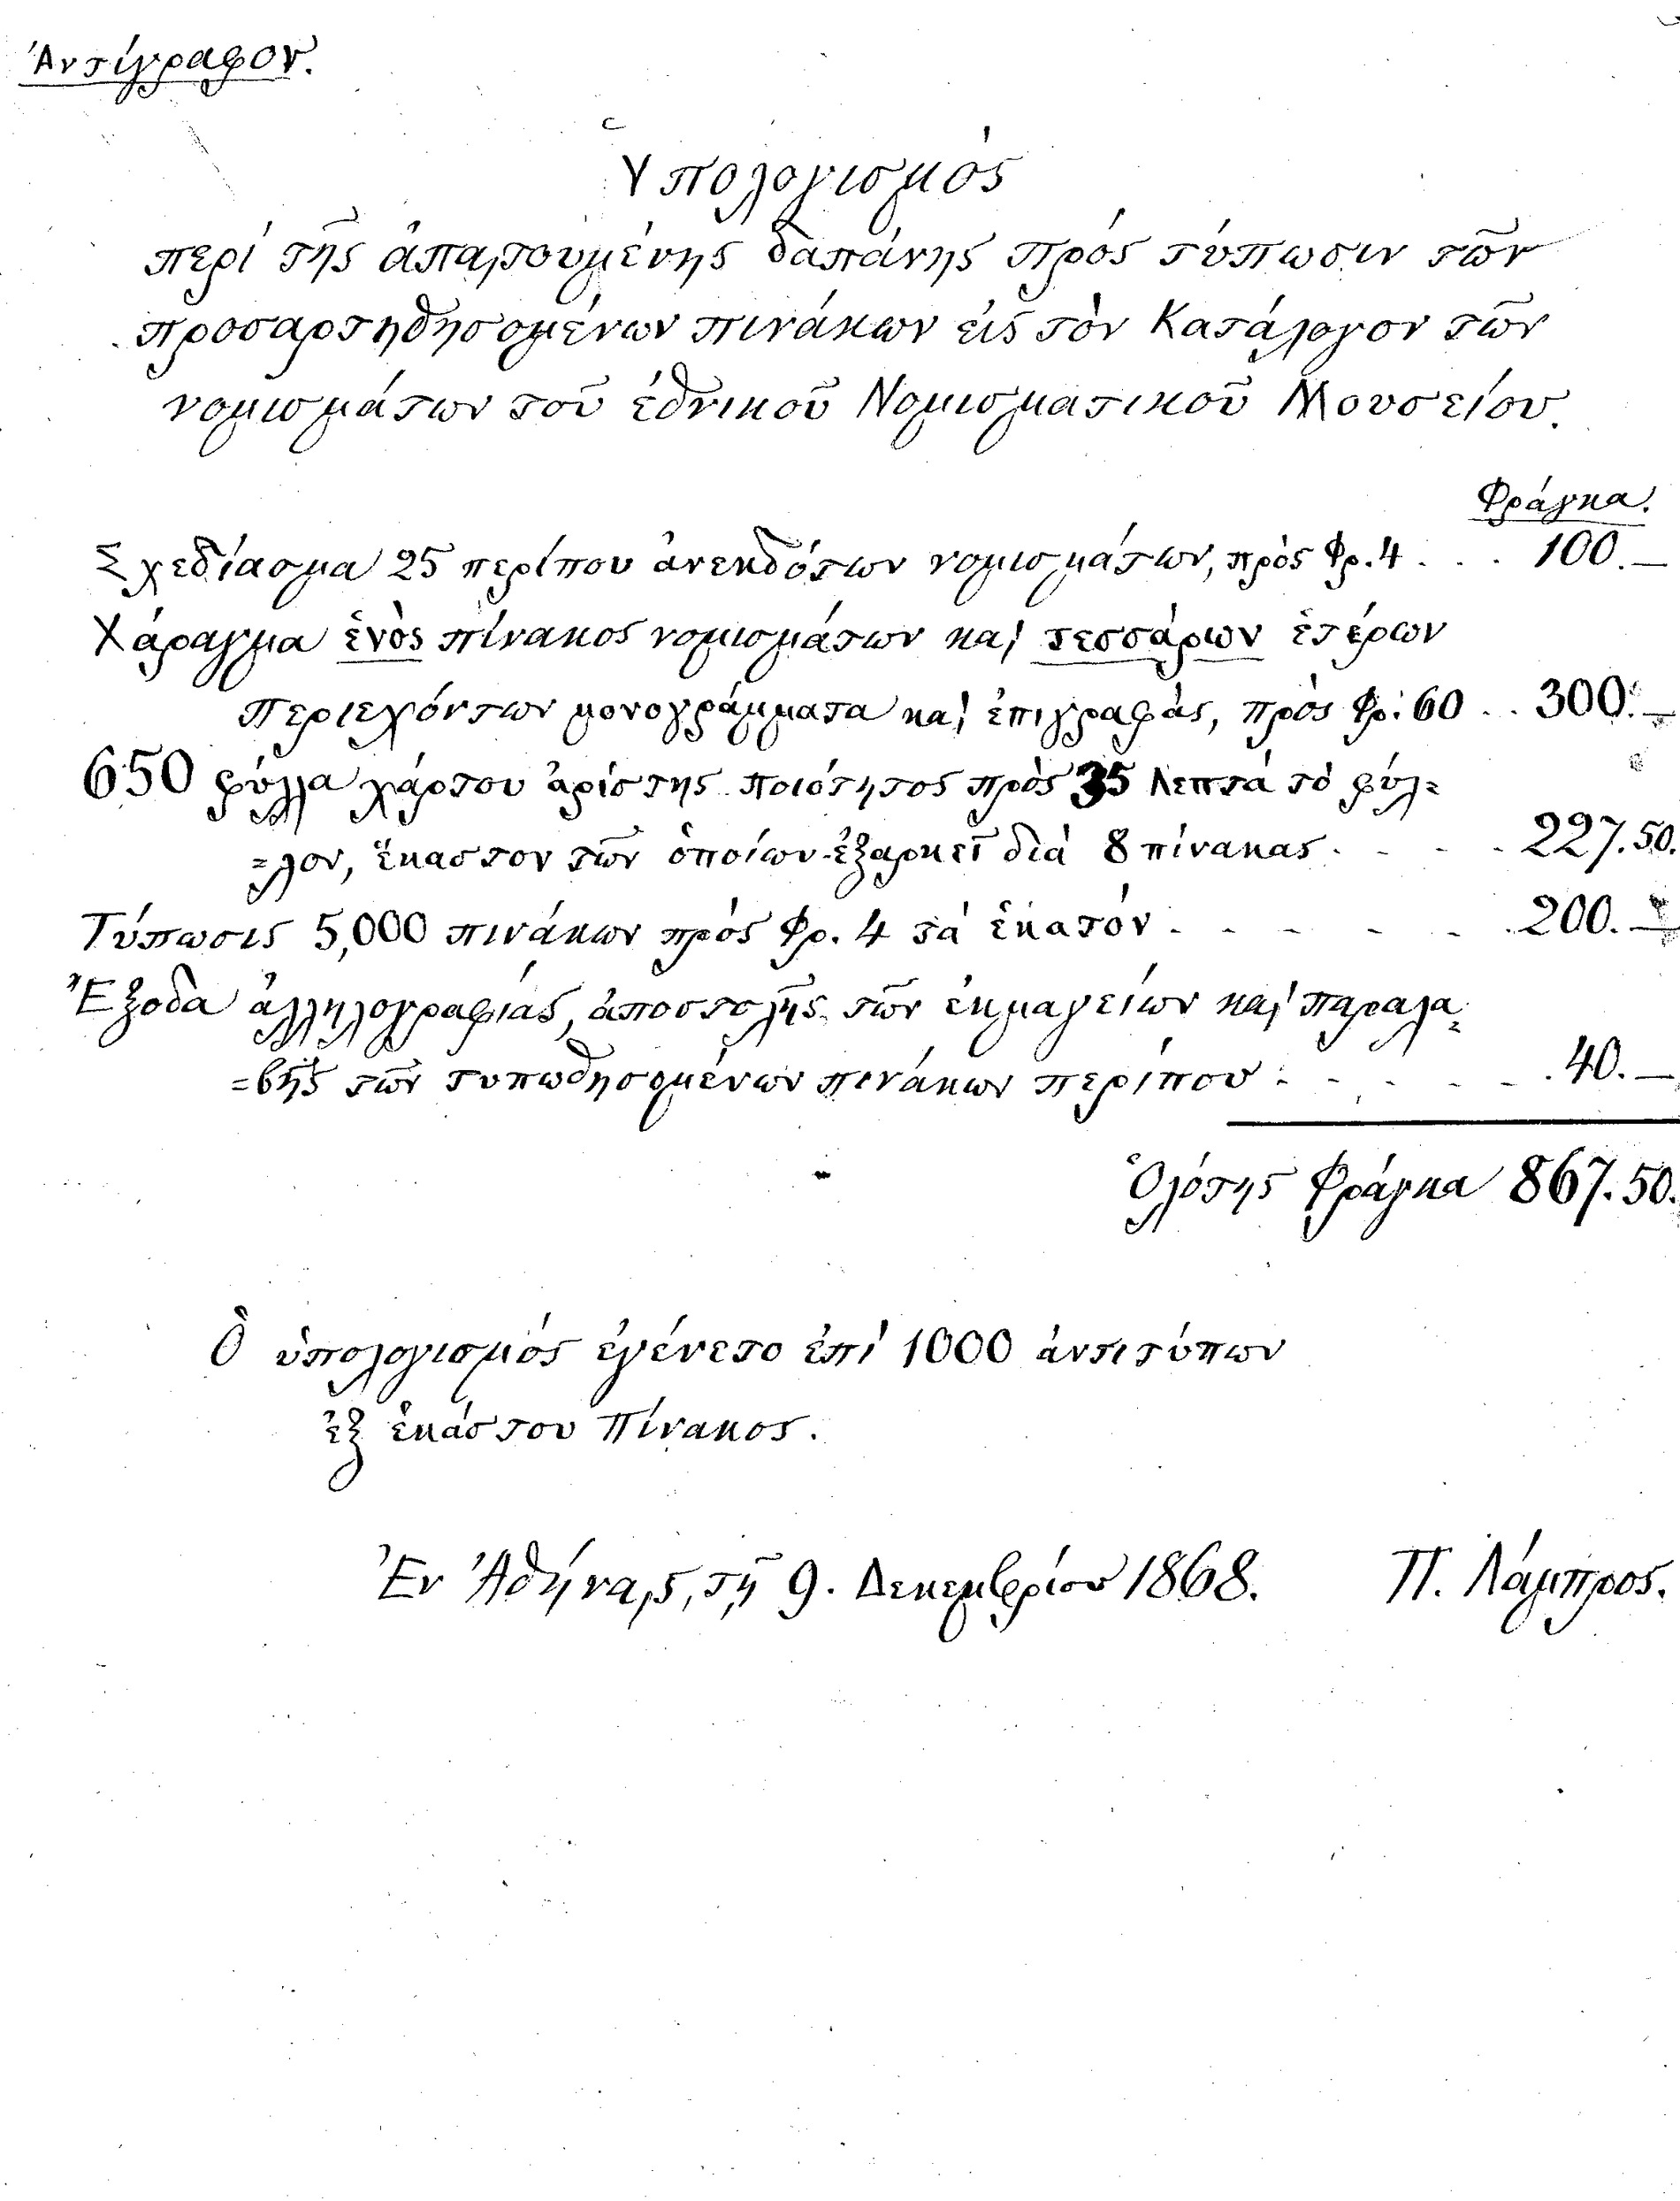 Ἀντίγραφον.
Ὑπολογισμός
περί τῆς ἀπαιτουμένης δαπάνης πρός τύπωσιν τῶν
προσαρτηθησομένων πινάκων εἰς τὸν Κατάλογον τῶν
νομισμάτων τοῦ ἐθνικοῦ Νομισματικοῦ Μουσείου.
Φράγκα.
Σχεδίασμα 25 περίπου ἀνεκδότων νομισμάτων, πρὸς Φρ. 4 . . . 100.—
Χάραγμα ἑνὸς πίνακος νομισμάτων καὶ τεσσάρων ἑτέρων
περιεχόντων μονογράμματα καὶ ἐπιγραφὰς, πρὸς Φρ: 60 . . 300.—
650 φύλλα χάρτου ἀρίστης ποιότητος πρὸς 35 λεπτὰ τὸ φύλ=
=λον, ἕκαστον τῶν ὁποίων ἐξαρκεῖ διά 8 πίνακας . . . . 227.50.
Τύπωσις 5,000 πινάκων πρὸς Φρ. 4 τά ἑκατόν . . . . . . 200.—
Ἔξοδα ἀλληλογραφίας, ἀποστολῆς τῶν ἐκμαγείων καὶ παραλα=
=βῆς τῶν τυπωθησομένων πινάκων περίπου . . . . . . 40.—
Ὁλότης Φράγκα 867.50.
Ὁ ὑπολογισμός ἐγένετο ἐπί 1000 ἀντιτύπων
ἐξ ἑκάστου Πίνακος.
Ἐν Ἀθήναις, τῇ 9. Δεκεμβρίου 1868. Π. Λάμπρος.